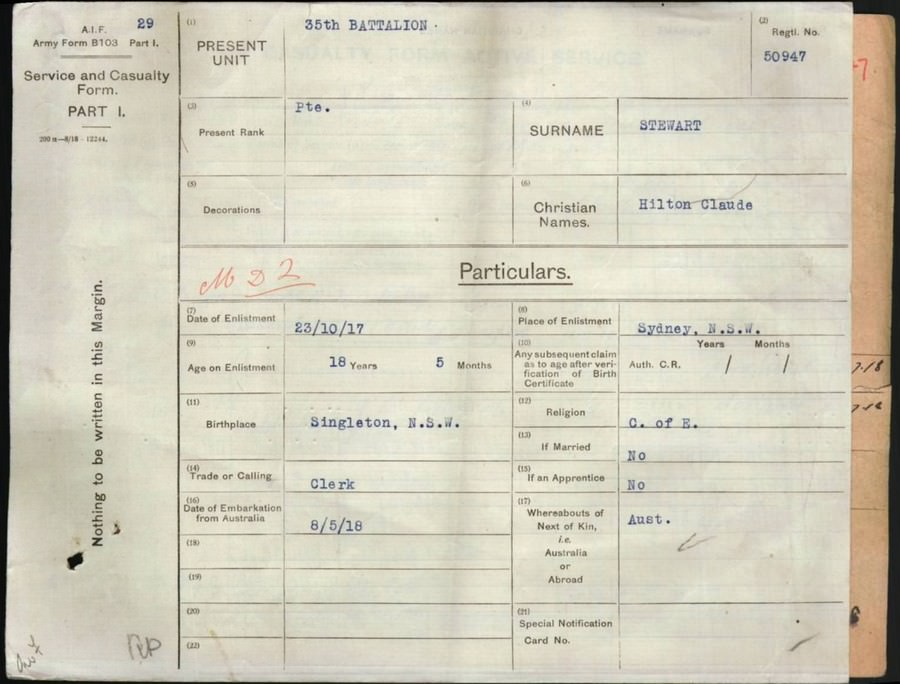 29
A.I.F.
Army Form B103 Part I.
Service and Casualty
Form.
PART I.
200 m—8/18 - 12244.
Nothing to be written in this Margin.
(1)
PRESENT
UNIT
35th BATTALION
(2)
Regtl. No.
50947
(3)
Present Rank
Pte.
(4)
SURNAME
STEWART
(5)
Decorations
(6)
Christian
Names.
Hilton Claude
M D 2
Particulars.
(7)
Date of Enlistment
23/10/17
(8)
Place of Enlistment
Sydney, N.S.W.
(9)
Age on Enlistment
18 Years 5 Months
(10)
Any subsequent claim
as to age after veri-
fication of Birth
Certificate
Years Months
Auth. C.R. / /
(11)
Birthplace
Singleton, N.S.W.
(12)
Religion
C. of E.
(13)
If Married
No
(14)
Trade or Calling
Clerk
(15)
If an Apprentice
No
(16)
Date of Embarkation
from Australia
8/5/18
(17)
Whereabouts of
Next of Kin,
i.e.
Australia
or
Abroad
Aust.
(18)
(19)
(20)
(21)
Special Notification
Card No.
(22)